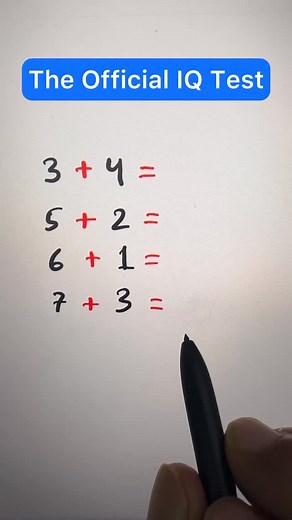 The Official IQ Test
3 + 4 =
5 + 2 =
6 + 1 =
7 + 3 =